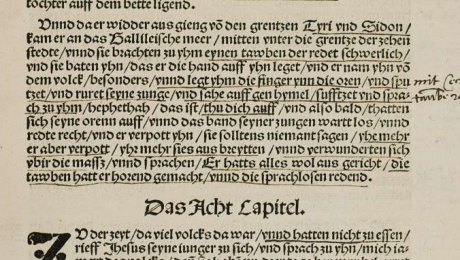 tochter auff dem bette ligend.
Vnnd da er widder aus gieng võ den grentzen Tyri vnd Sidon/
kam er an das Gallileische meer/mitten vnter die grentze der zehen
stedte/vnnd sie brachten zu yhm eynen tawben der redet schwerlich/
vnd sie baten yhn/das er die hand auff yhn leget/vnd er nam yhn võ
dem volck/besonders/vnnd legt yhm die finger ynn die oren/vnd spu
tzet/vnd ruret seyne zunge/vnd sahe auff gen hymel/sufftzet vnd spra-
ch zu yhm/hephethah/das ist/thu dich auff/vnd also bald/thatten
sich seyne orenn auff/vnnd das band seyner zungen wartt los/vnnd
redte recht/vnd er verpott yhn/sie solltens niemant sagen/yhe mehr
er aber verpott/yhe mehr sies aus breytten/vnnd verwunderten sich
vbir die massz/vnnd sprachen/Er hatts alles wol aus gericht/die
tawben hatt er horend gemacht/vnnd die sprachlosen redend.
Das Acht Capitel.
ZV der zeyt/da viel volcks da war/vnnd hatten nicht zu essen/
rieff Jhesus seyne iunger zu sich/vnd sprach zu yhn/mich ia-